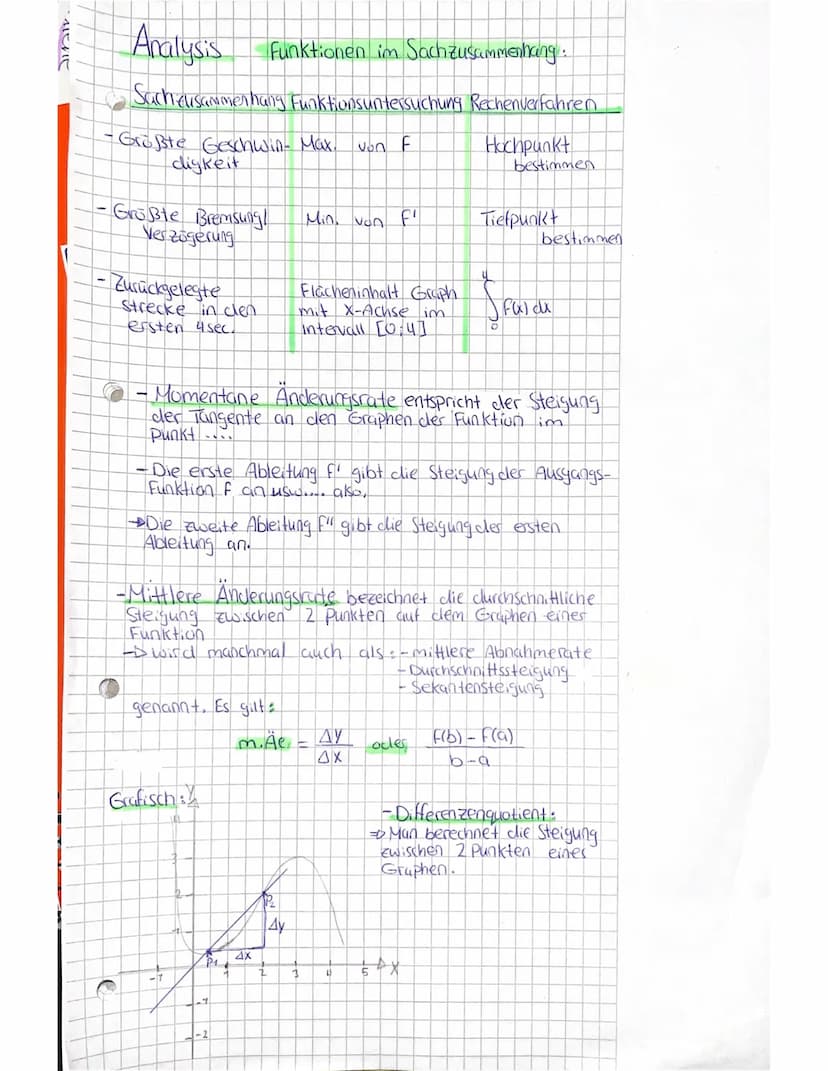 Analysis Funktionen im Sachzusammenhang:
Sachzusammenhang Funktionsuntersuchung Rechenverfahren
- Größte Geschwin- Max. von F Hochpunkt
digkeit bestimmen
- Größte Bremsung/ Min. von F' Tiefpunkt
Verzögerung bestimmen
- Zurückgelegte Flächeninhalt Graph 4
strecke in den mit X-Achse im ∫ f(x) dx
ersten 4 sec. Intervall [0;4] 0
- Momentane Änderungsrate entspricht der Steigung
der Tangente an den Graphen der Funktion im
Punkt ....
- Die erste Ableitung f' gibt die Steigung der Ausgangs-
Funktion F an usw.... also,
→ Die zweite Ableitung f'' gibt die Steigung der ersten
Ableitung an.
- Mittlere Änderungsrate bezeichnet die durchschnittliche
Steigung zwischen 2 Punkten auf dem Graphen einer
Funktion
→ wird manchmal auch als: - mittlere Abnahmerate
- Durchschnittssteigung
- Sekantensteigung
genannt. Es gilt:
m.Äe = Δy/Δx oder F(b) - F(a) / b-a
Grafisch: Y
- Differenzenquotient:
⇒ Man berechnet die Steigung
zwischen 2 Punkten eines
Graphen.
3
2 P2
1 Δy
P1 Δx
-1 1 2 3 4 5 X
-1
-2